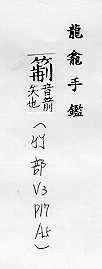 龍龕手鑑
音前
矢也
(竹部 V3 P17 A5)